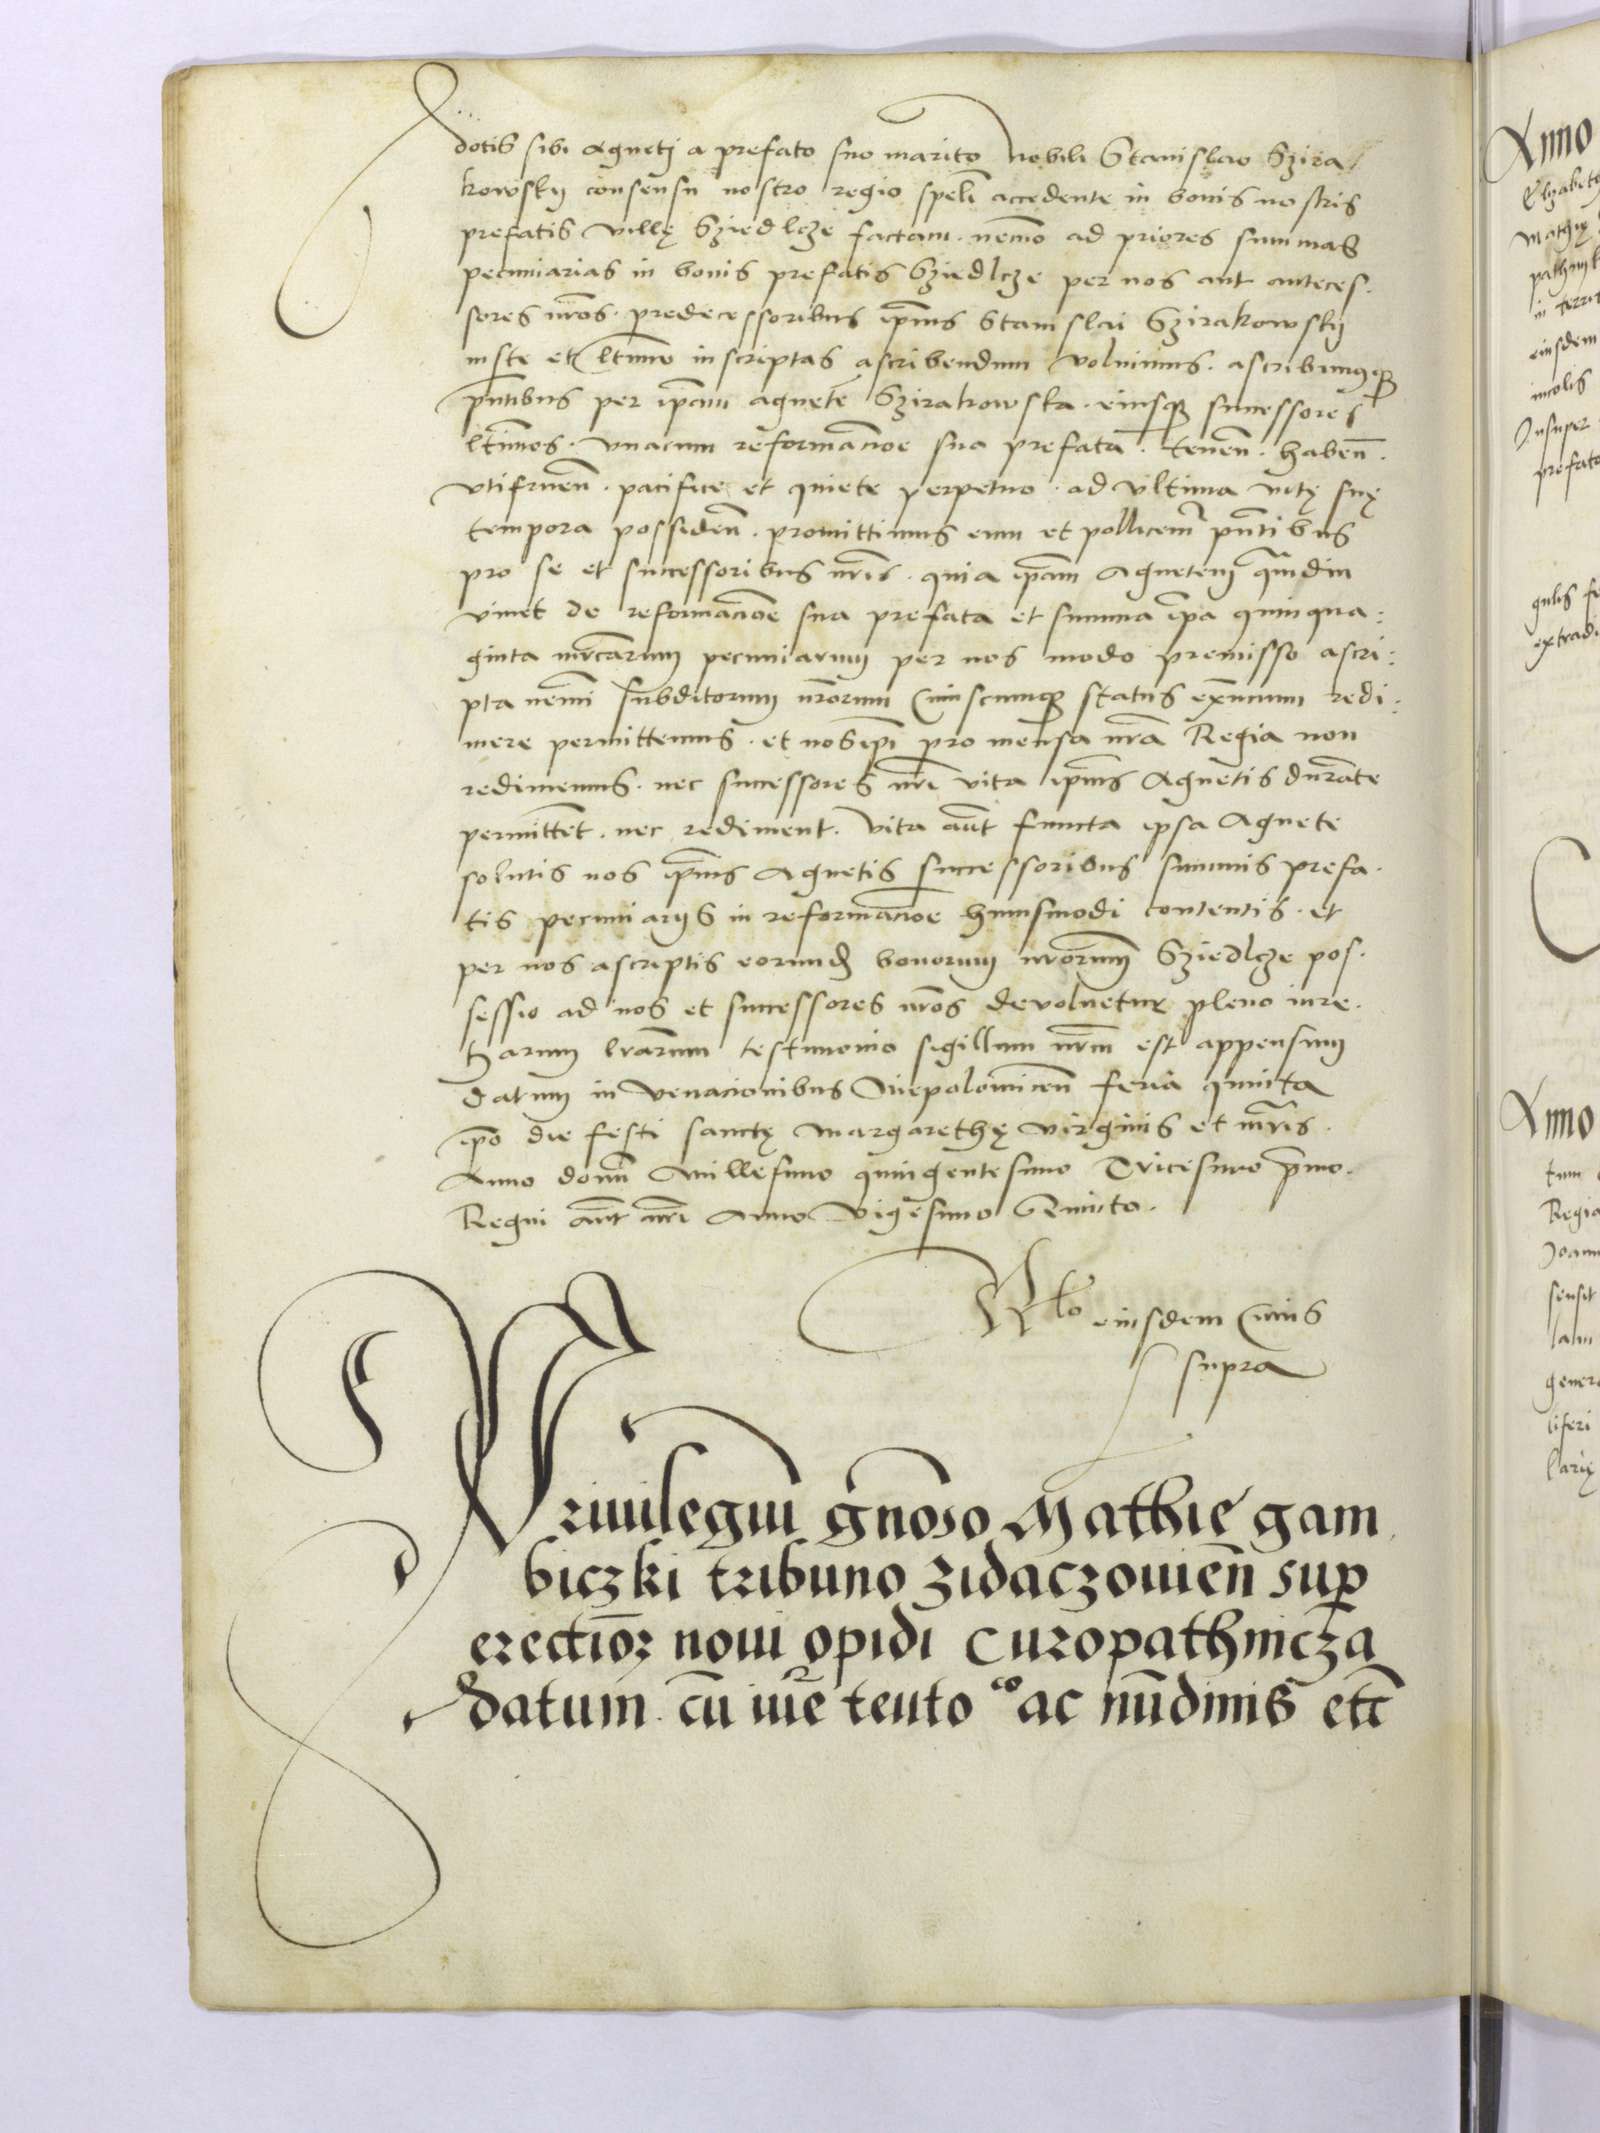 dotis sibi Agneti a prefato suo marito nobili Stanislao Szira
kowsky consensu nostro regio speli accedente in bonis nostris
prefatis villę Sziedlcze factam. nemo ad priores summas
pecuniarias in bonis prefatis Sziedlcze per nos aut anteces.
sores nros. predecessoribus ipius Stanislai Szirakowsky
iuste et ltime inscriptas ascribendum voluimus. ascribimusq
pntibus per ipam agnete Szirakowska. eiusq successores
ltimos. vnacum reformacioe sua prefata. tenen. haben.
vtifruen. pacifice et quiete perpetuo. ad vltima vitę suę
tempora possiden. promittimus eum et pollicemr pntibus
pro se et successoribus nris. quia ipam Agnetem qudiu
viuet de reformacioe sua prefata et summa ipa quinqua:
ginta mrcarum pecuniarum per nos modo premisso ascri:
pta nemi subditorum nrorum cuiuscumq status exnium redi:
mere permittemus. et nosipi pro mensa nra Regia non
redimemus. nec successores nri vita ipius Agnetis durate
permittet. nec rediment. vita aut functa ipsa Agnete
solutis nos ipius Agnetis successoribus summis prefa.
tis pecuniarijs in reformacioe huiusmodi contentis. et
per nos ascriptis eorund bonorum nrorum Sziedlcze pos.
sessio ad nos et successores nros devoluetur pleno iure.
Harum lrarum testimonio sigillum nrm est appensum
datum in venacionibus Niepolomicen feria quinta
ipo die festi sanctę Margarethę virginis et mris.
Anno domi Millesimo quingentesimo Tricesimo pmo.
Regni aut nri Anno Vigesimo Quinto.
Rlo eiusdem cuius
supra
Priuilegiu gnoso Mathie gam
biczki tribuno zidaczouien sup
erectior noui opidi Curopathnicza
datum. cu iure teuto co ac nudinis etc
Anno
Anno
Regia
supra